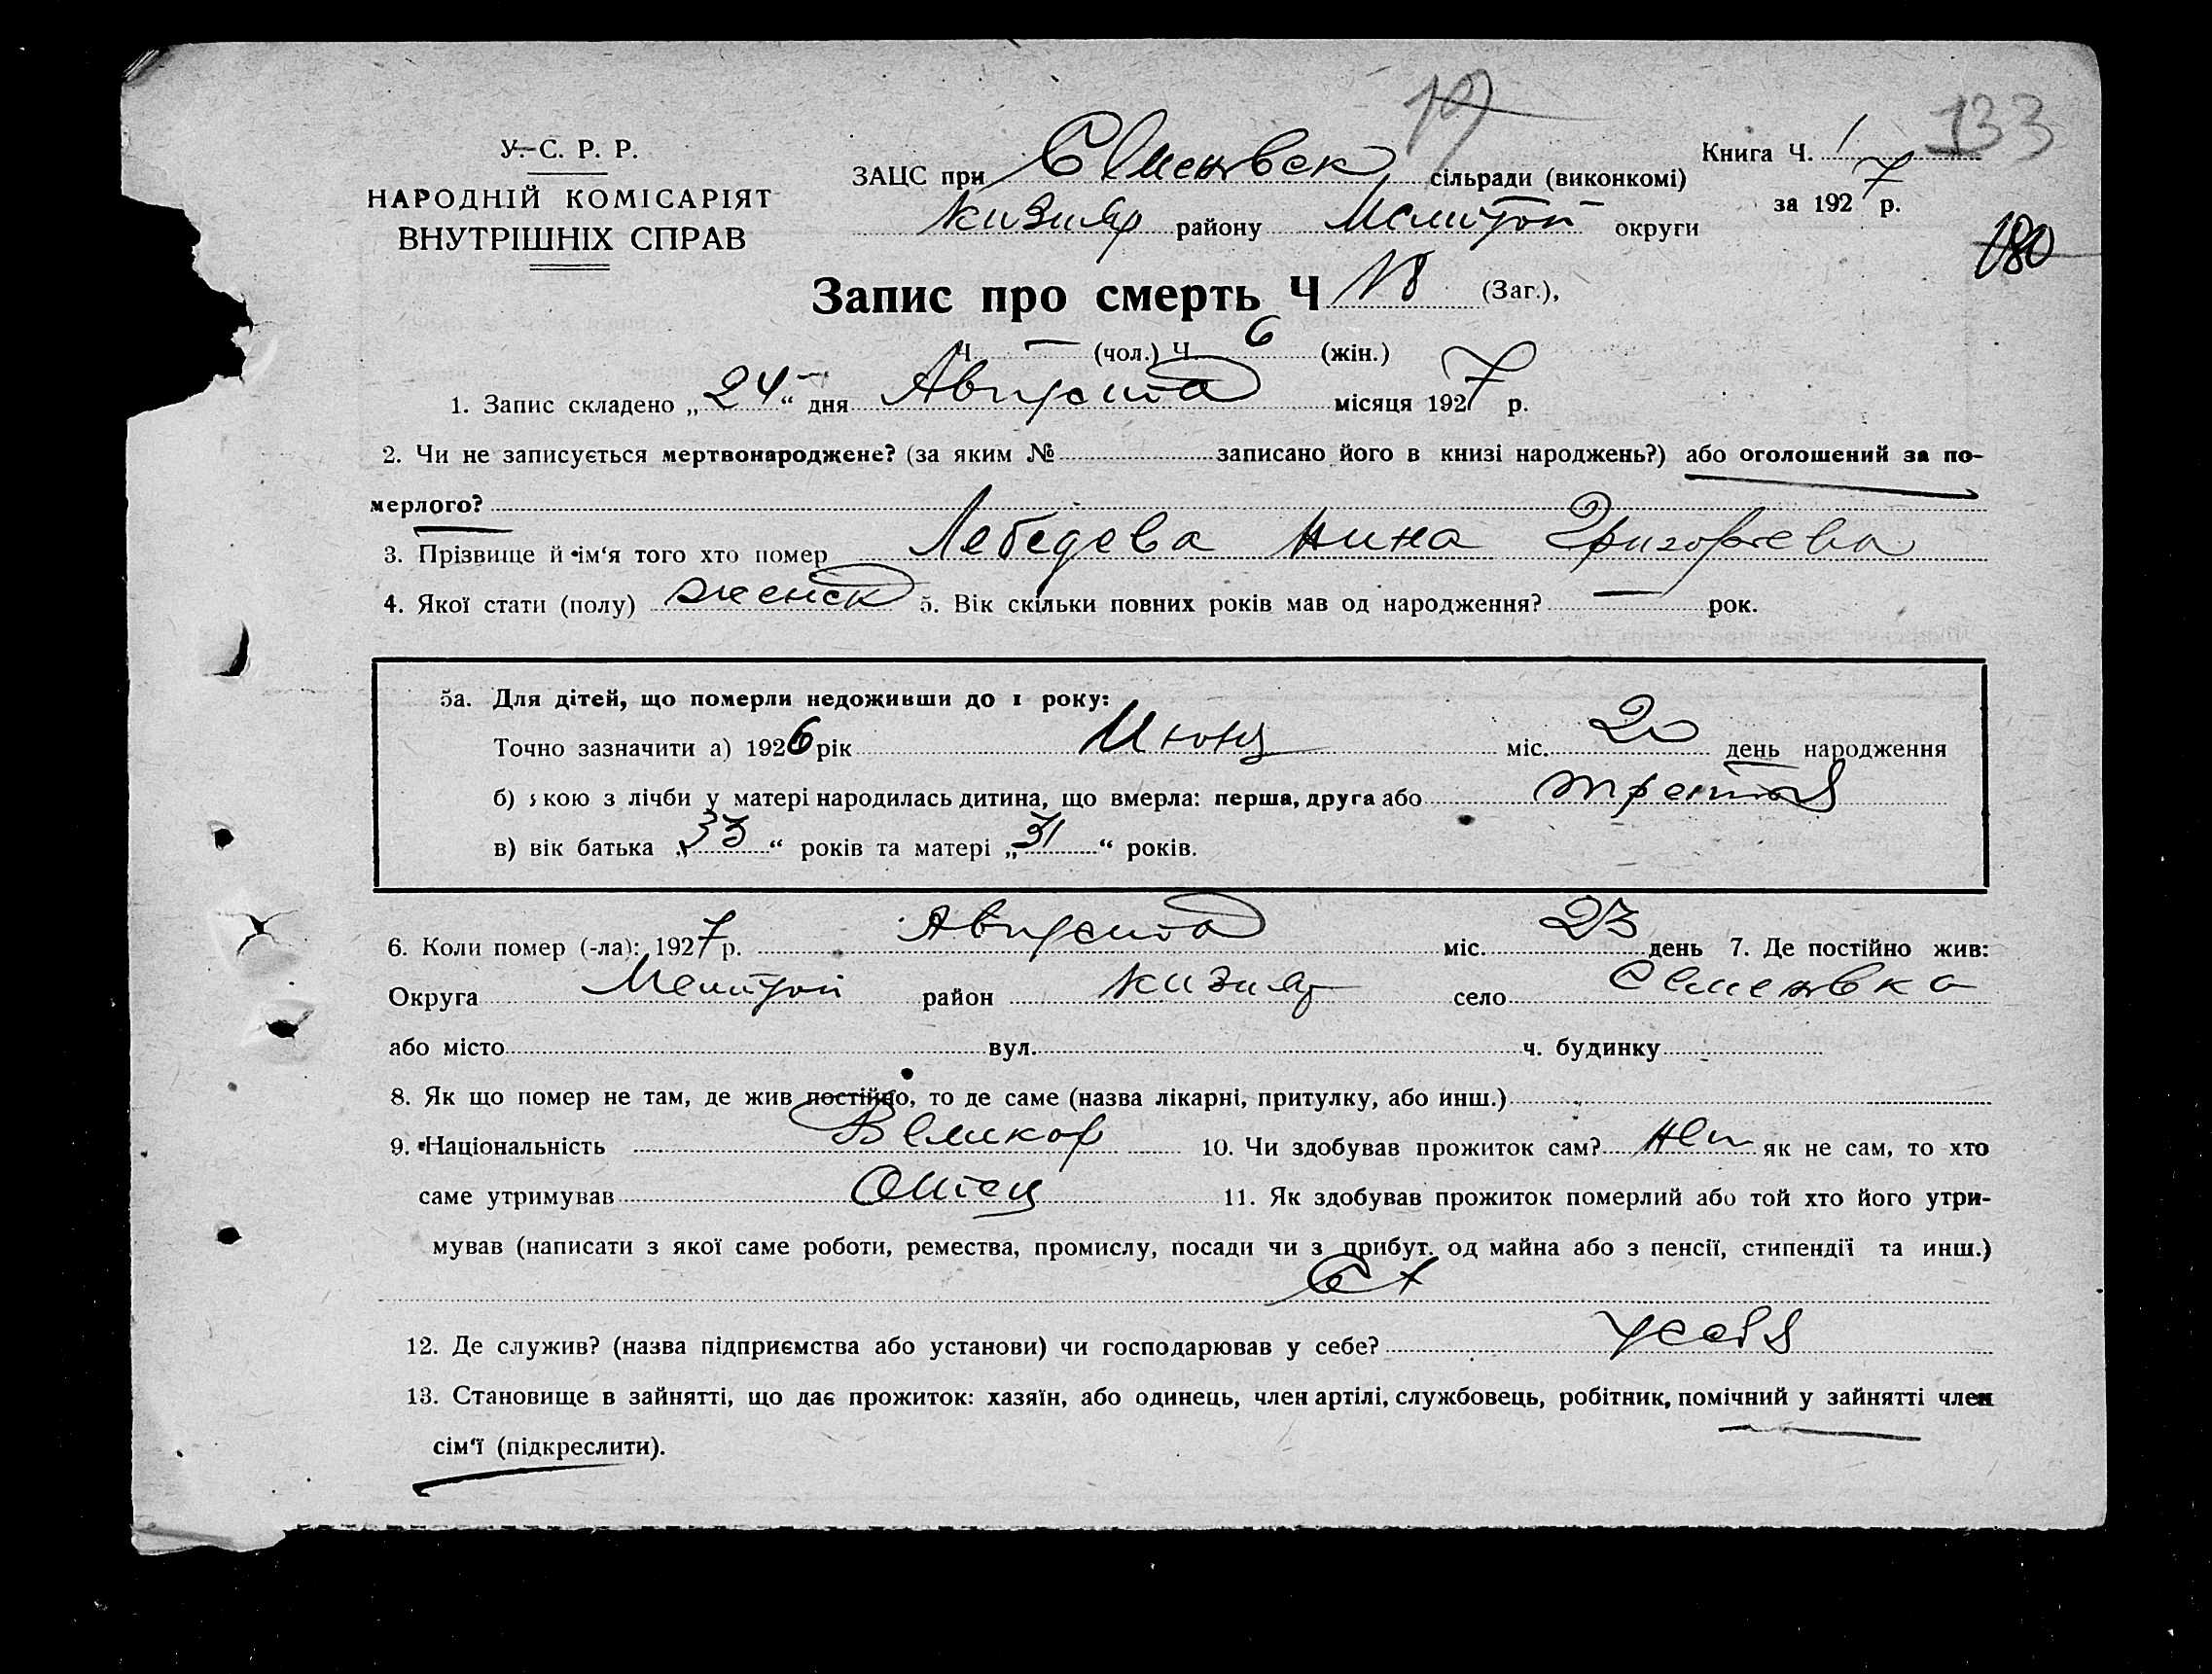 133
19
У. С. Р. Р.
НАРОДНІЙ КОМІСАРІЯТ
ВНУТРІШНІХ СПРАВ
ЗАЦС при Семеновск сільради (виконкомі)
Кизияр району Мелитоп округи
Книга Ч. 1
за 1927 р.
180
Запис про смерть Ч 18 (Заг.),
Ч. — (чол.) Ч. 6 (жін.)
1. Запис складено „24“ дня Августа місяця 1927 р.
2. Чи не записується мертвонароджене? (за яким № записано його в книзі народжень?) або оголошений за по-
мерлого?
3. Прізвище й ім‘я того хто помер Лебедева Нина Григорьева
4. Якої стати (полу) женск 5. Вік скільки повних років мав од народження? — рок.
5а. Для дітей, що померли недоживши до 1 року:
Точно зазначити а) 1926 рік Июня міс. 20 день народження
б) якою з лічби у матері народилась дитина, що вмерла: перша, друга або третья
в) вік батька „33“ років та матері „31“ років.
6. Коли помер (-ла): 1927 р. Августа міс. 23 день 7. Де постійно жив:
Округа Мелитоп район Кизияр село Семеновка
або місто вул. ч. будинку
8. Як що помер не там, де жив постійно, то де саме (назва лікарні, притулку, або инш.)
9. Національність Великор 10. Чи здобував прожиток сам? Нет як не сам, то хто
саме утримував Отец 11. Як здобував прожиток померлий або той хто його утри-
мував (написати з якої саме роботи, ремества, промислу, посади чи з прибут. од майна або з пенсії, стипендії та инш.)
Сх
12. Де служив? (назва підприємства або установи) чи господарював у себе? усебя
13. Становище в зайнятті, що дає прожиток: хазяїн, або одинець, член артілі, службовець, робітник, помічний у зайнятті член
сім‘ї (підкреслити).